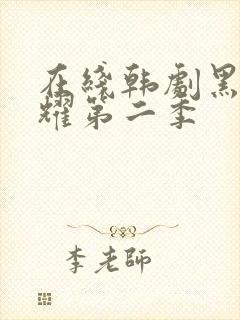 在綫韩劇黑
耀第二季
李老師